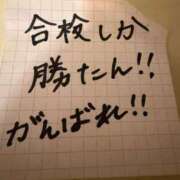 合格しか
勝たん!!
がんばれ!!